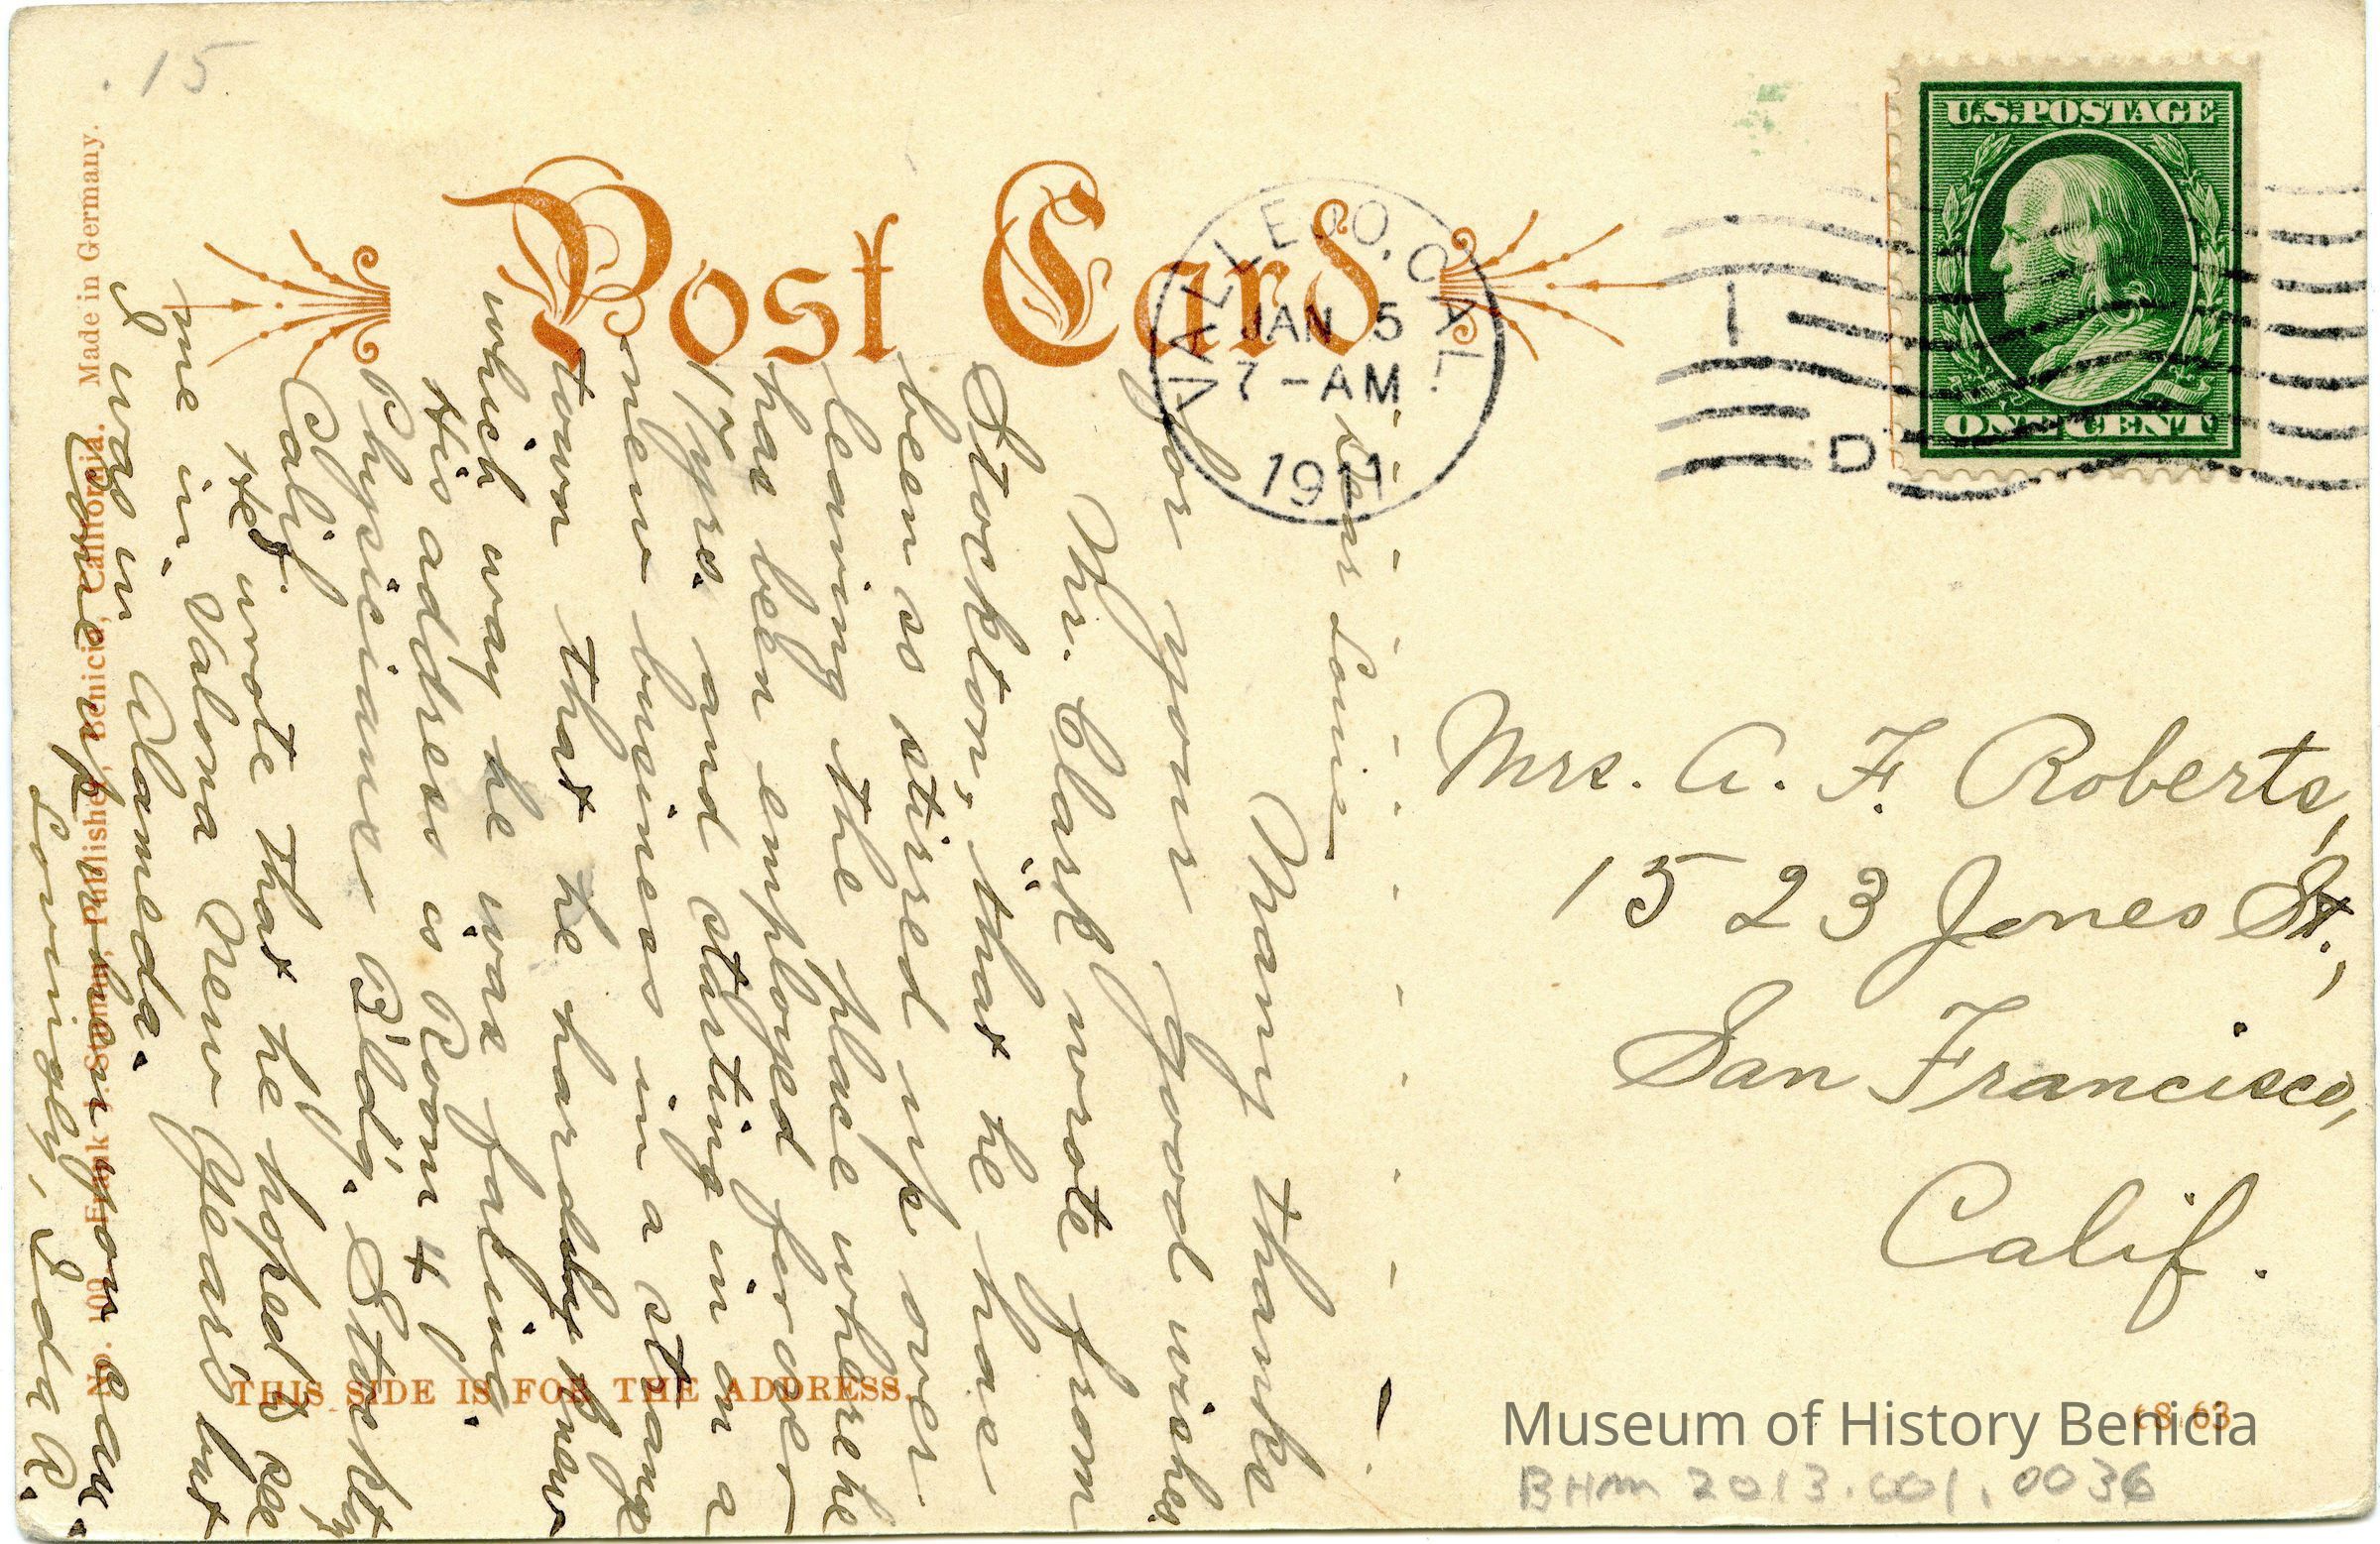 .15
Post Card
VALLEJO, CAL.
JAN 5
7-AM
1911
1
D
U.S. POSTAGE
ONE CENT
Mrs. A. F. Roberts,
1523 Jones St.,
San Francisco,
Calif.
Dear Louie—
Many thanks
for your good wishes.
Mr. Clark wrote from
Stockton, that he has
been so stirred up over
leaving the place where he
has been employed for over
17 yrs. and starting in on a
new business in a strange
town that he hardly knew
which way he was facing.
His address is Room 4
Physicians Bld'g. Stockton
Calif.
He wrote that he hoped to see
me in Valona New Year's but
I was in Alameda.
Come up when you can.
Lovingly, Ida R.
No. 109 Frank J. Stumm, Publisher, Benicia, California. Made in Germany.
THIS SIDE IS FOR THE ADDRESS.
Museum of History Benicia
BHM 2013.001.0036